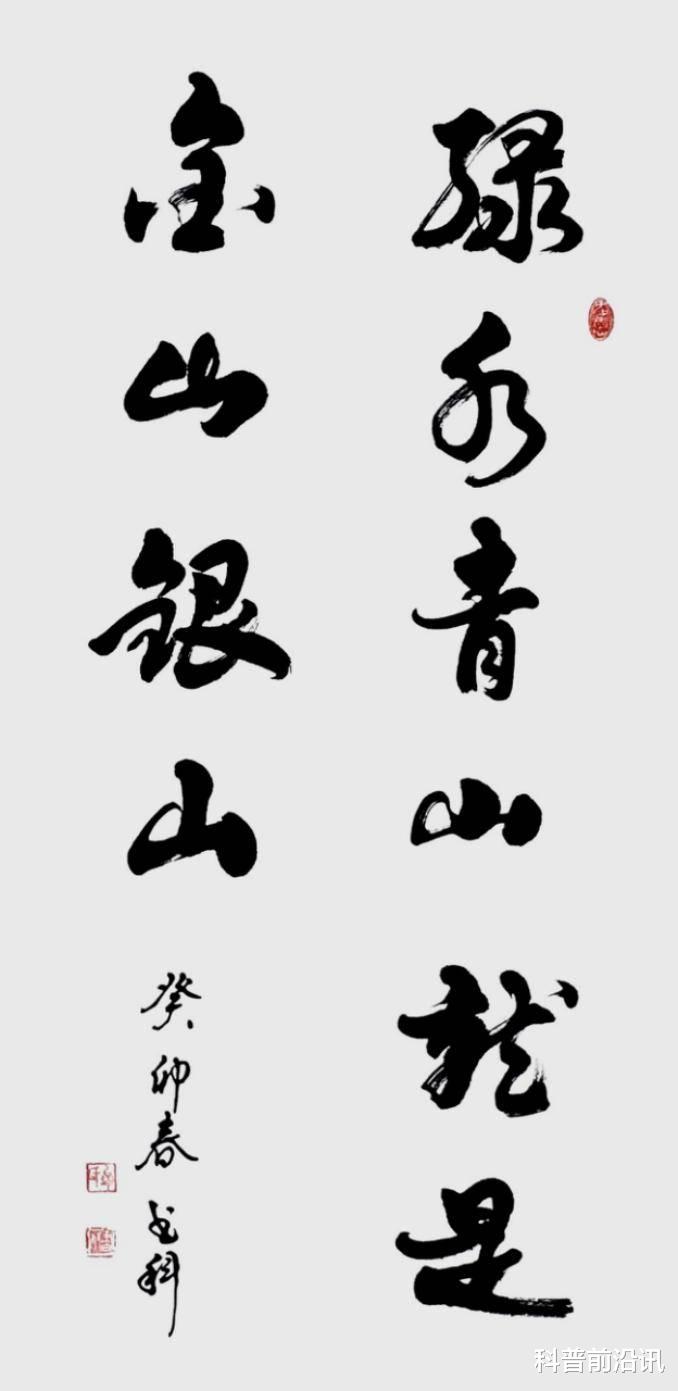 绿水青山就是
金山银山
癸卯春
科普前沿讯